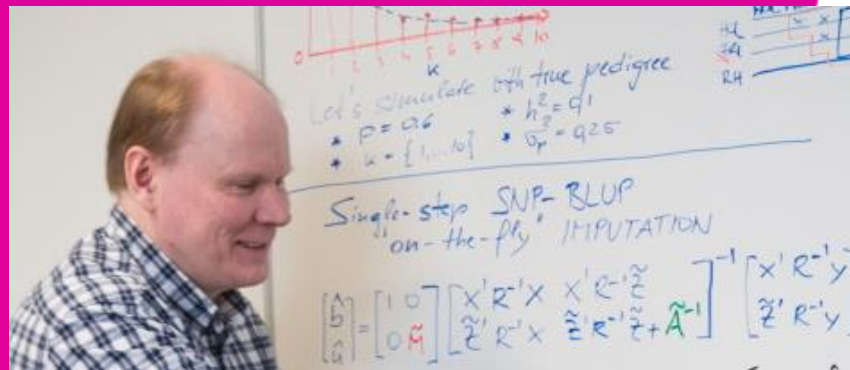 0 1 2 3 4 5 6 7 8 9 10
K
Let's simulate with true pedigree
* p = 0.6 * h² = 0.1
* k = {1,...10} * = 0.25
RH
Single-step SNP-BLUP
"on-the-fly" IMPUTATION
[b̂ û] = [1 0 0 M̃] [X'R⁻¹X X'R⁻¹Z̃ Z̃'R⁻¹X Z̃'R⁻¹Z̃+Ã⁻¹]⁻¹ [X'R⁻¹y Z̃'R⁻¹y